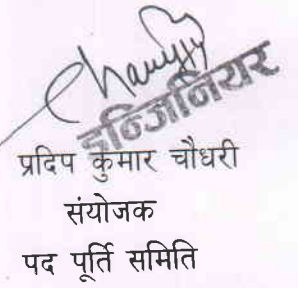 इन्जिनियर
प्रदिप कुमार चौधरी
संयोजक
पद पूर्ति समिति